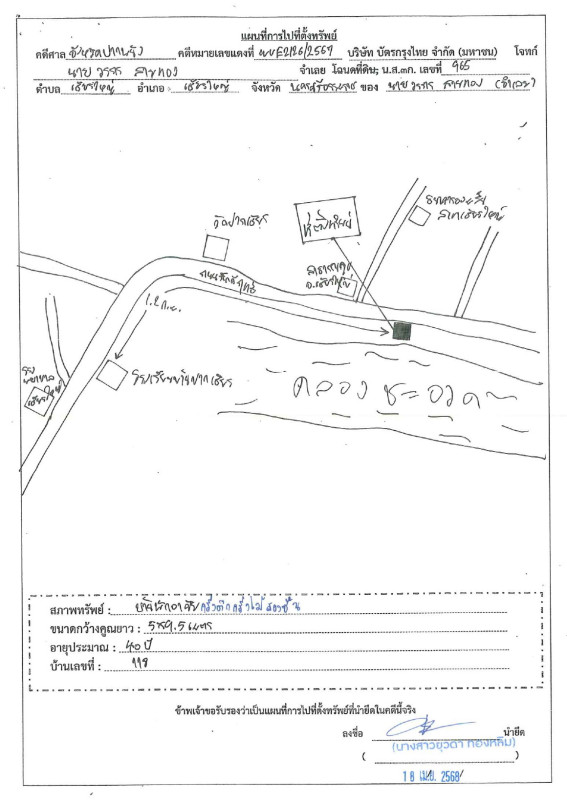 แผนที่การไปที่ตั้งทรัพย์
คดีศาล จังหวัดปากพนัง คดีหมายเลขแดงที่ ผบE2126/2567 บริษัท บัตรกรุงไทย จำกัด (มหาชน) โจทก์
นาย จำเลย โฉนดที่ดิน; น.ส.๓ก. เลขที่ 965
ตำบล เชียรใหญ่ อำเภอ เชียรใหญ่ จังหวัด นครศรีธรรมราช ของ นาย (จำเลย)
ที่ตั้งทรัพย์
วัดปากเชียร
สาขาเชียรใหญ่
อ.เชียรใหญ่
1.2 ก.ม.
โรงเรียนบ้านปากเชียร
โรง
พยาบาล
เชียรใหญ่
คลอง ชะอวด
สภาพทรัพย์ : บ้านพักอาศัยครึ่งตึกครึ่งไม้สองชั้น
ขนาดกว้างคูณยาว : 5x9.5 เมตร
อายุประมาณ : 40 ปี
บ้านเลขที่ : 118
ข้าพเจ้าขอรับรองว่าเป็นแผนที่การไปที่ตั้งทรัพย์ที่นำยึดในคดีนี้จริง
ลงชื่อ นำยึด
(นางสาวยุวดา ทองหลิม)
( )
18 เม.ย. 2568